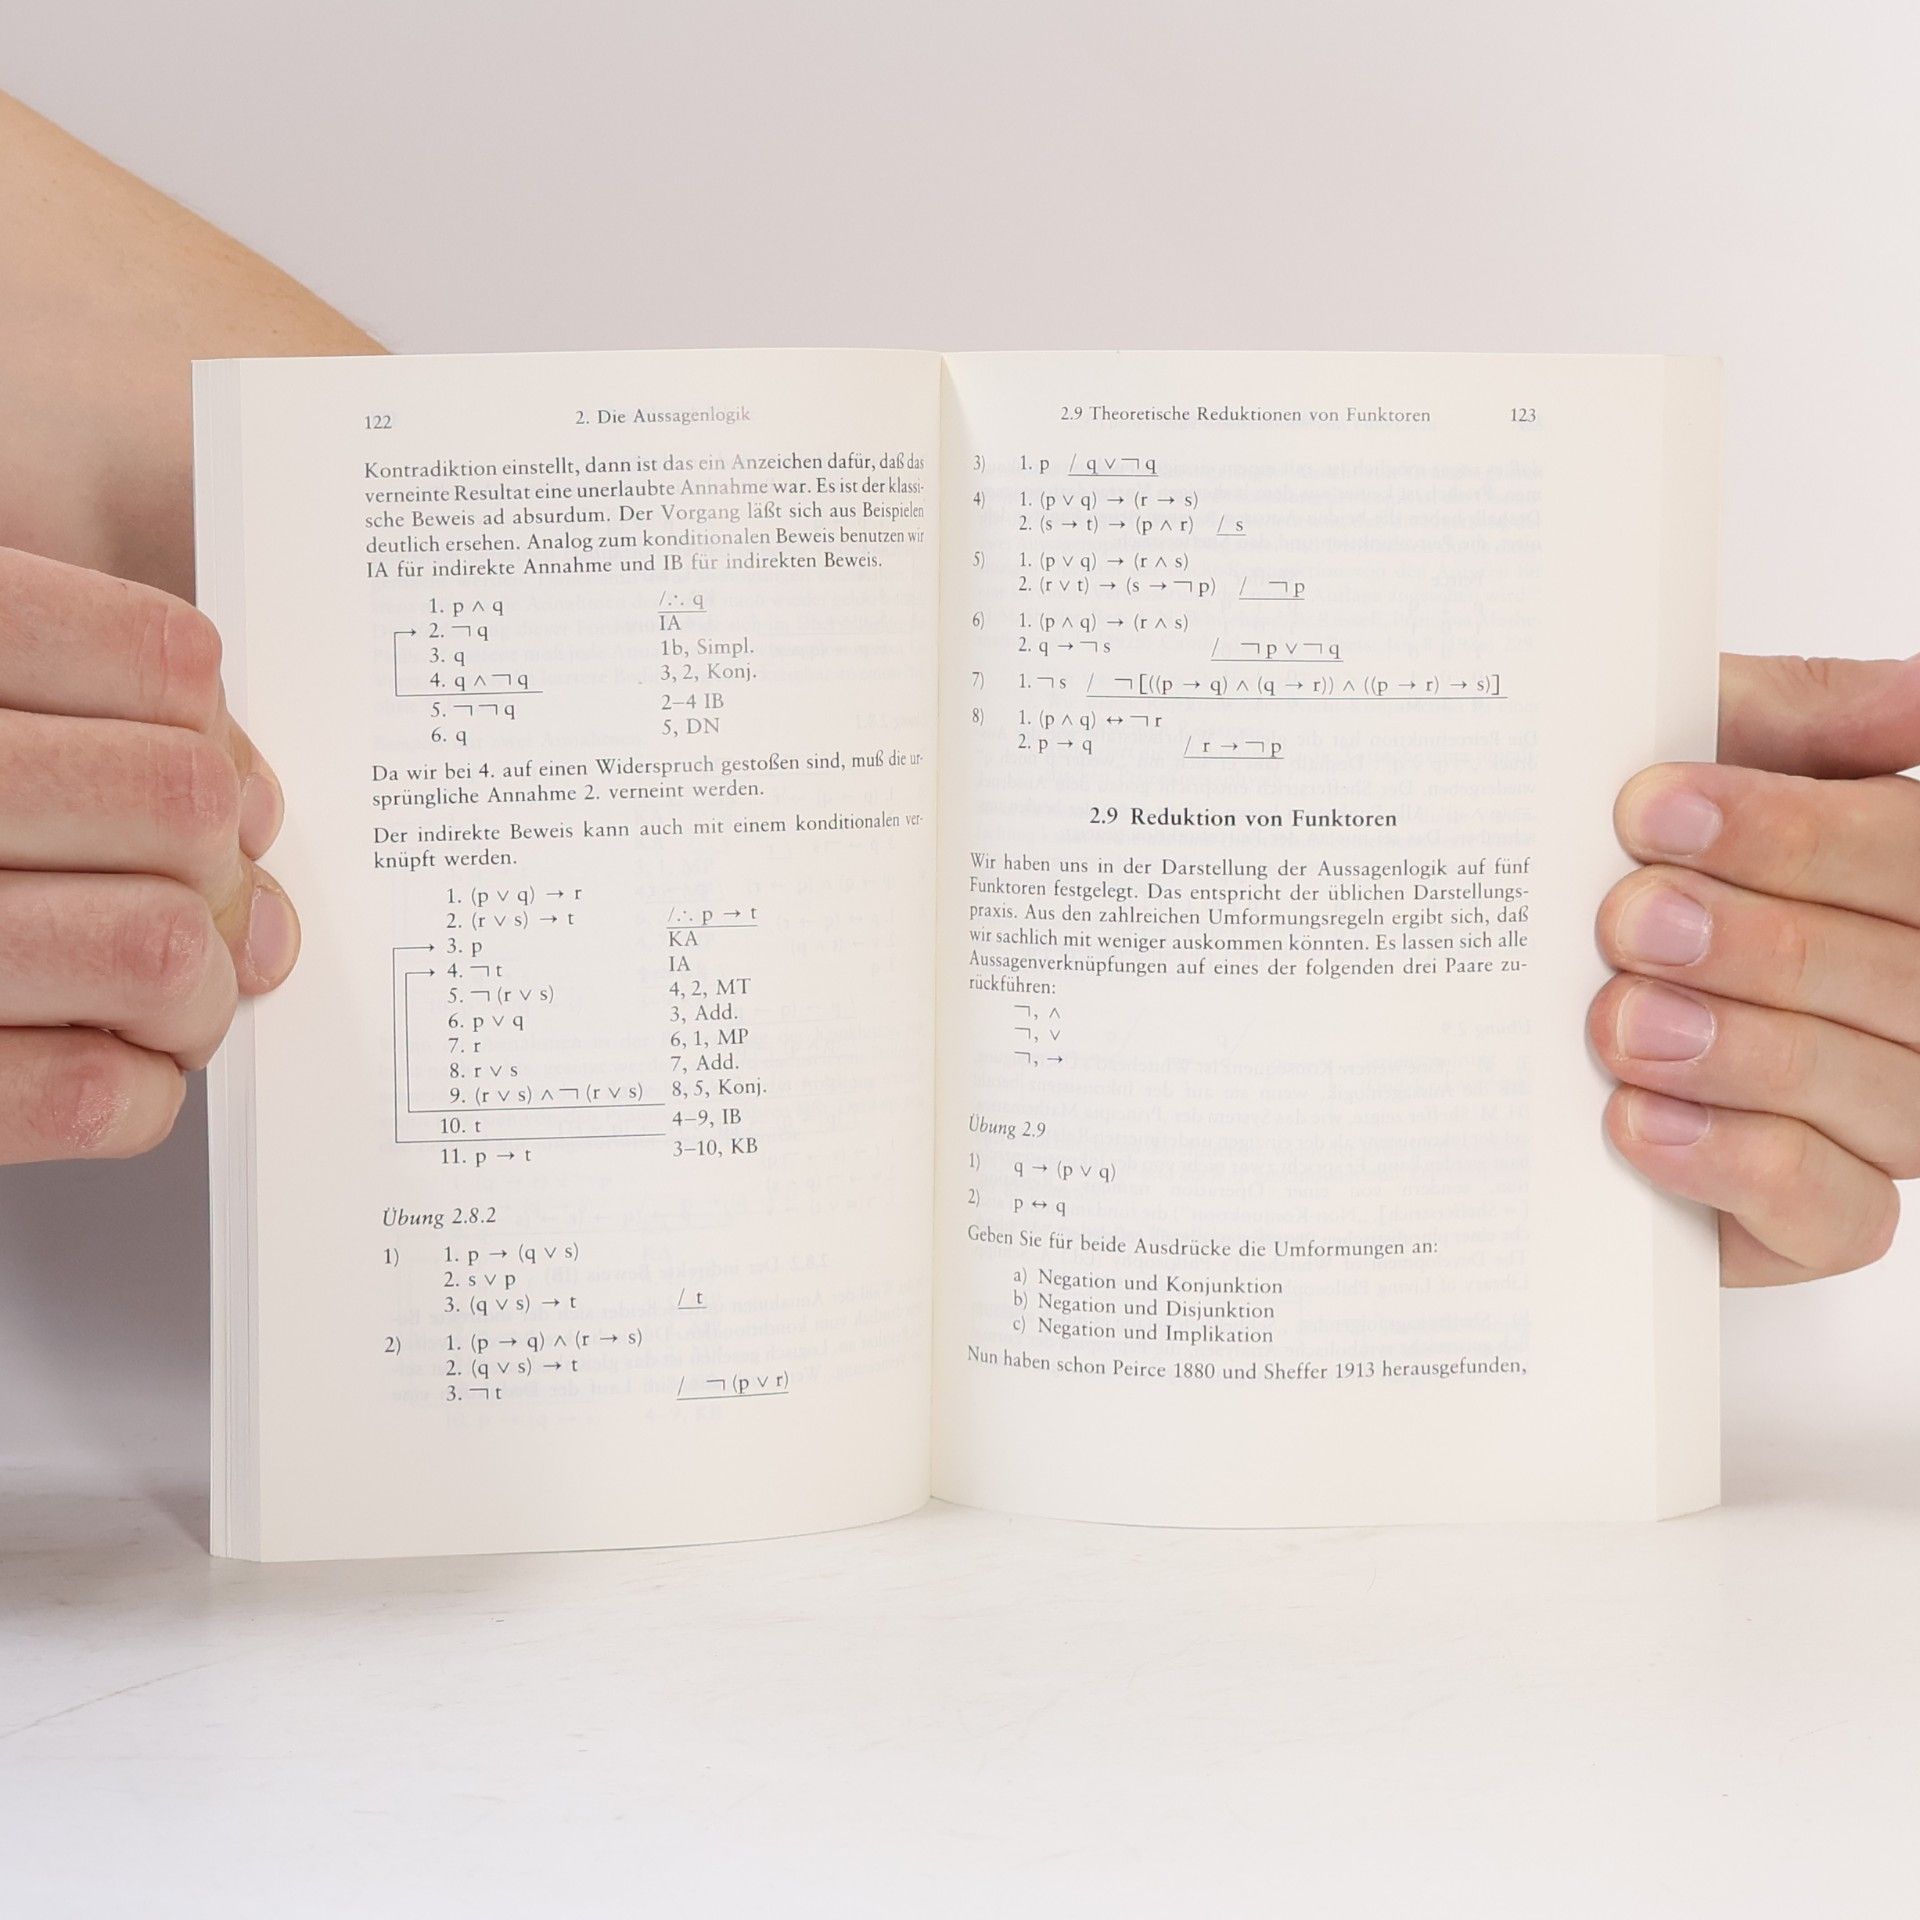 122
2. Die Aussagenlogik
Kontradiktion einstellt, dann ist das ein Anzeichen dafür, daß das
verneinte Resultat eine unerlaubte Annahme war. Es ist der klassi-
sche Beweis ad absurdum. Der Vorgang läßt sich aus Beispielen
deutlich ersehen. Analog zum konditionalen Beweis benutzen wir
IA für indirekte Annahme und IB für indirekten Beweis.
1. p ∧ q /∴ q
2. ¬q IA
3. q 1b, Simpl.
4. q ∧ ¬q 3, 2, Konj.
5. ¬¬q 2–4 IB
6. q 5, DN
Da wir bei 4. auf einen Widerspruch gestoßen sind, muß die ur-
sprüngliche Annahme 2. verneint werden.
Der indirekte Beweis kann auch mit einem konditionalen ver-
knüpft werden.
1. (p ∨ q) → r
2. (r ∨ s) → t /∴ p → t
3. p KA
4. ¬t IA
5. ¬(r ∨ s) 4, 2, MT
6. p ∨ q 3, Add.
7. r 6, 1, MP
8. r ∨ s 7, Add.
9. (r ∨ s) ∧ ¬(r ∨ s) 8, 5, Konj.
10. t 4–9, IB
11. p → t 3–10, KB
Übung 2.8.2
1) 1. p → (q ∨ s)
2. s ∨ p
3. (q ∨ s) → t / t
2) 1. (p → q) ∧ (r → s)
2. (q ∨ s) → t
3. ¬t / ¬(p ∨ r)
2.9 Theoretische Reduktionen von Funktoren
123
3) 1. p / q ∨ ¬q
4) 1. (p ∨ q) → (r → s)
2. (s → t) → (p ∧ r) / s
5) 1. (p ∨ q) → (r ∧ s)
2. (r ∨ t) → (s → ¬p) / ¬p
6) 1. (p ∧ q) → (r ∧ s)
2. q → ¬s / ¬p ∨ ¬q
7) 1. ¬s / ¬[((p → q) ∧ (q → r)) ∧ ((p → r) → s)]
8) 1. (p ∧ q) ↔ ¬r
2. p → q / r → ¬p
2.9 Reduktion von Funktoren
Wir haben uns in der Darstellung der Aussagenlogik auf fünf
Funktoren festgelegt. Das entspricht der üblichen Darstellungs-
praxis. Aus den zahlreichen Umformungsregeln ergibt sich, daß
wir sachlich mit weniger auskommen könnten. Es lassen sich alle
Aussagenverknüpfungen auf eines der folgenden drei Paare zu-
rückführen:
¬, ∧
¬, ∨
¬, →
Übung 2.9
1) q → (p ∨ q)
2) p ↔ q
Geben Sie für beide Ausdrücke die Umformungen an:
a) Negation und Konjunktion
b) Negation und Disjunktion
c) Negation und Implikation
Nun haben schon Peirce 1880 und Sheffer 1913 herausgefunden,